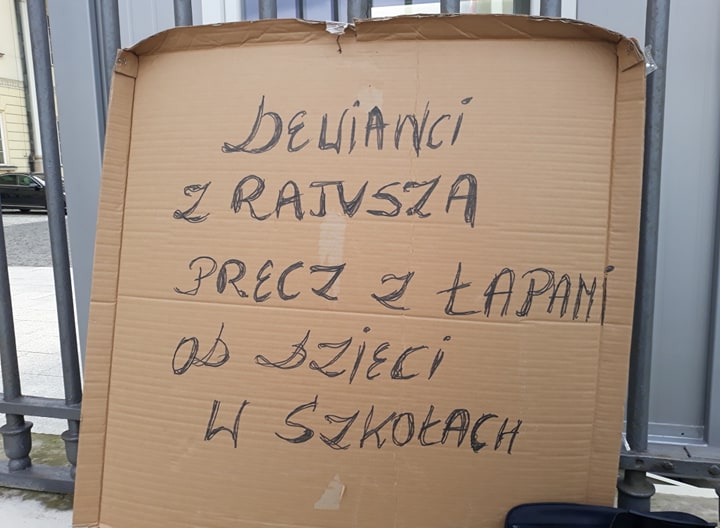 DEWIANCI
Z RATUSZA
PRECZ Z ŁAPAMI
OD DZIECI
W SZKOŁACH